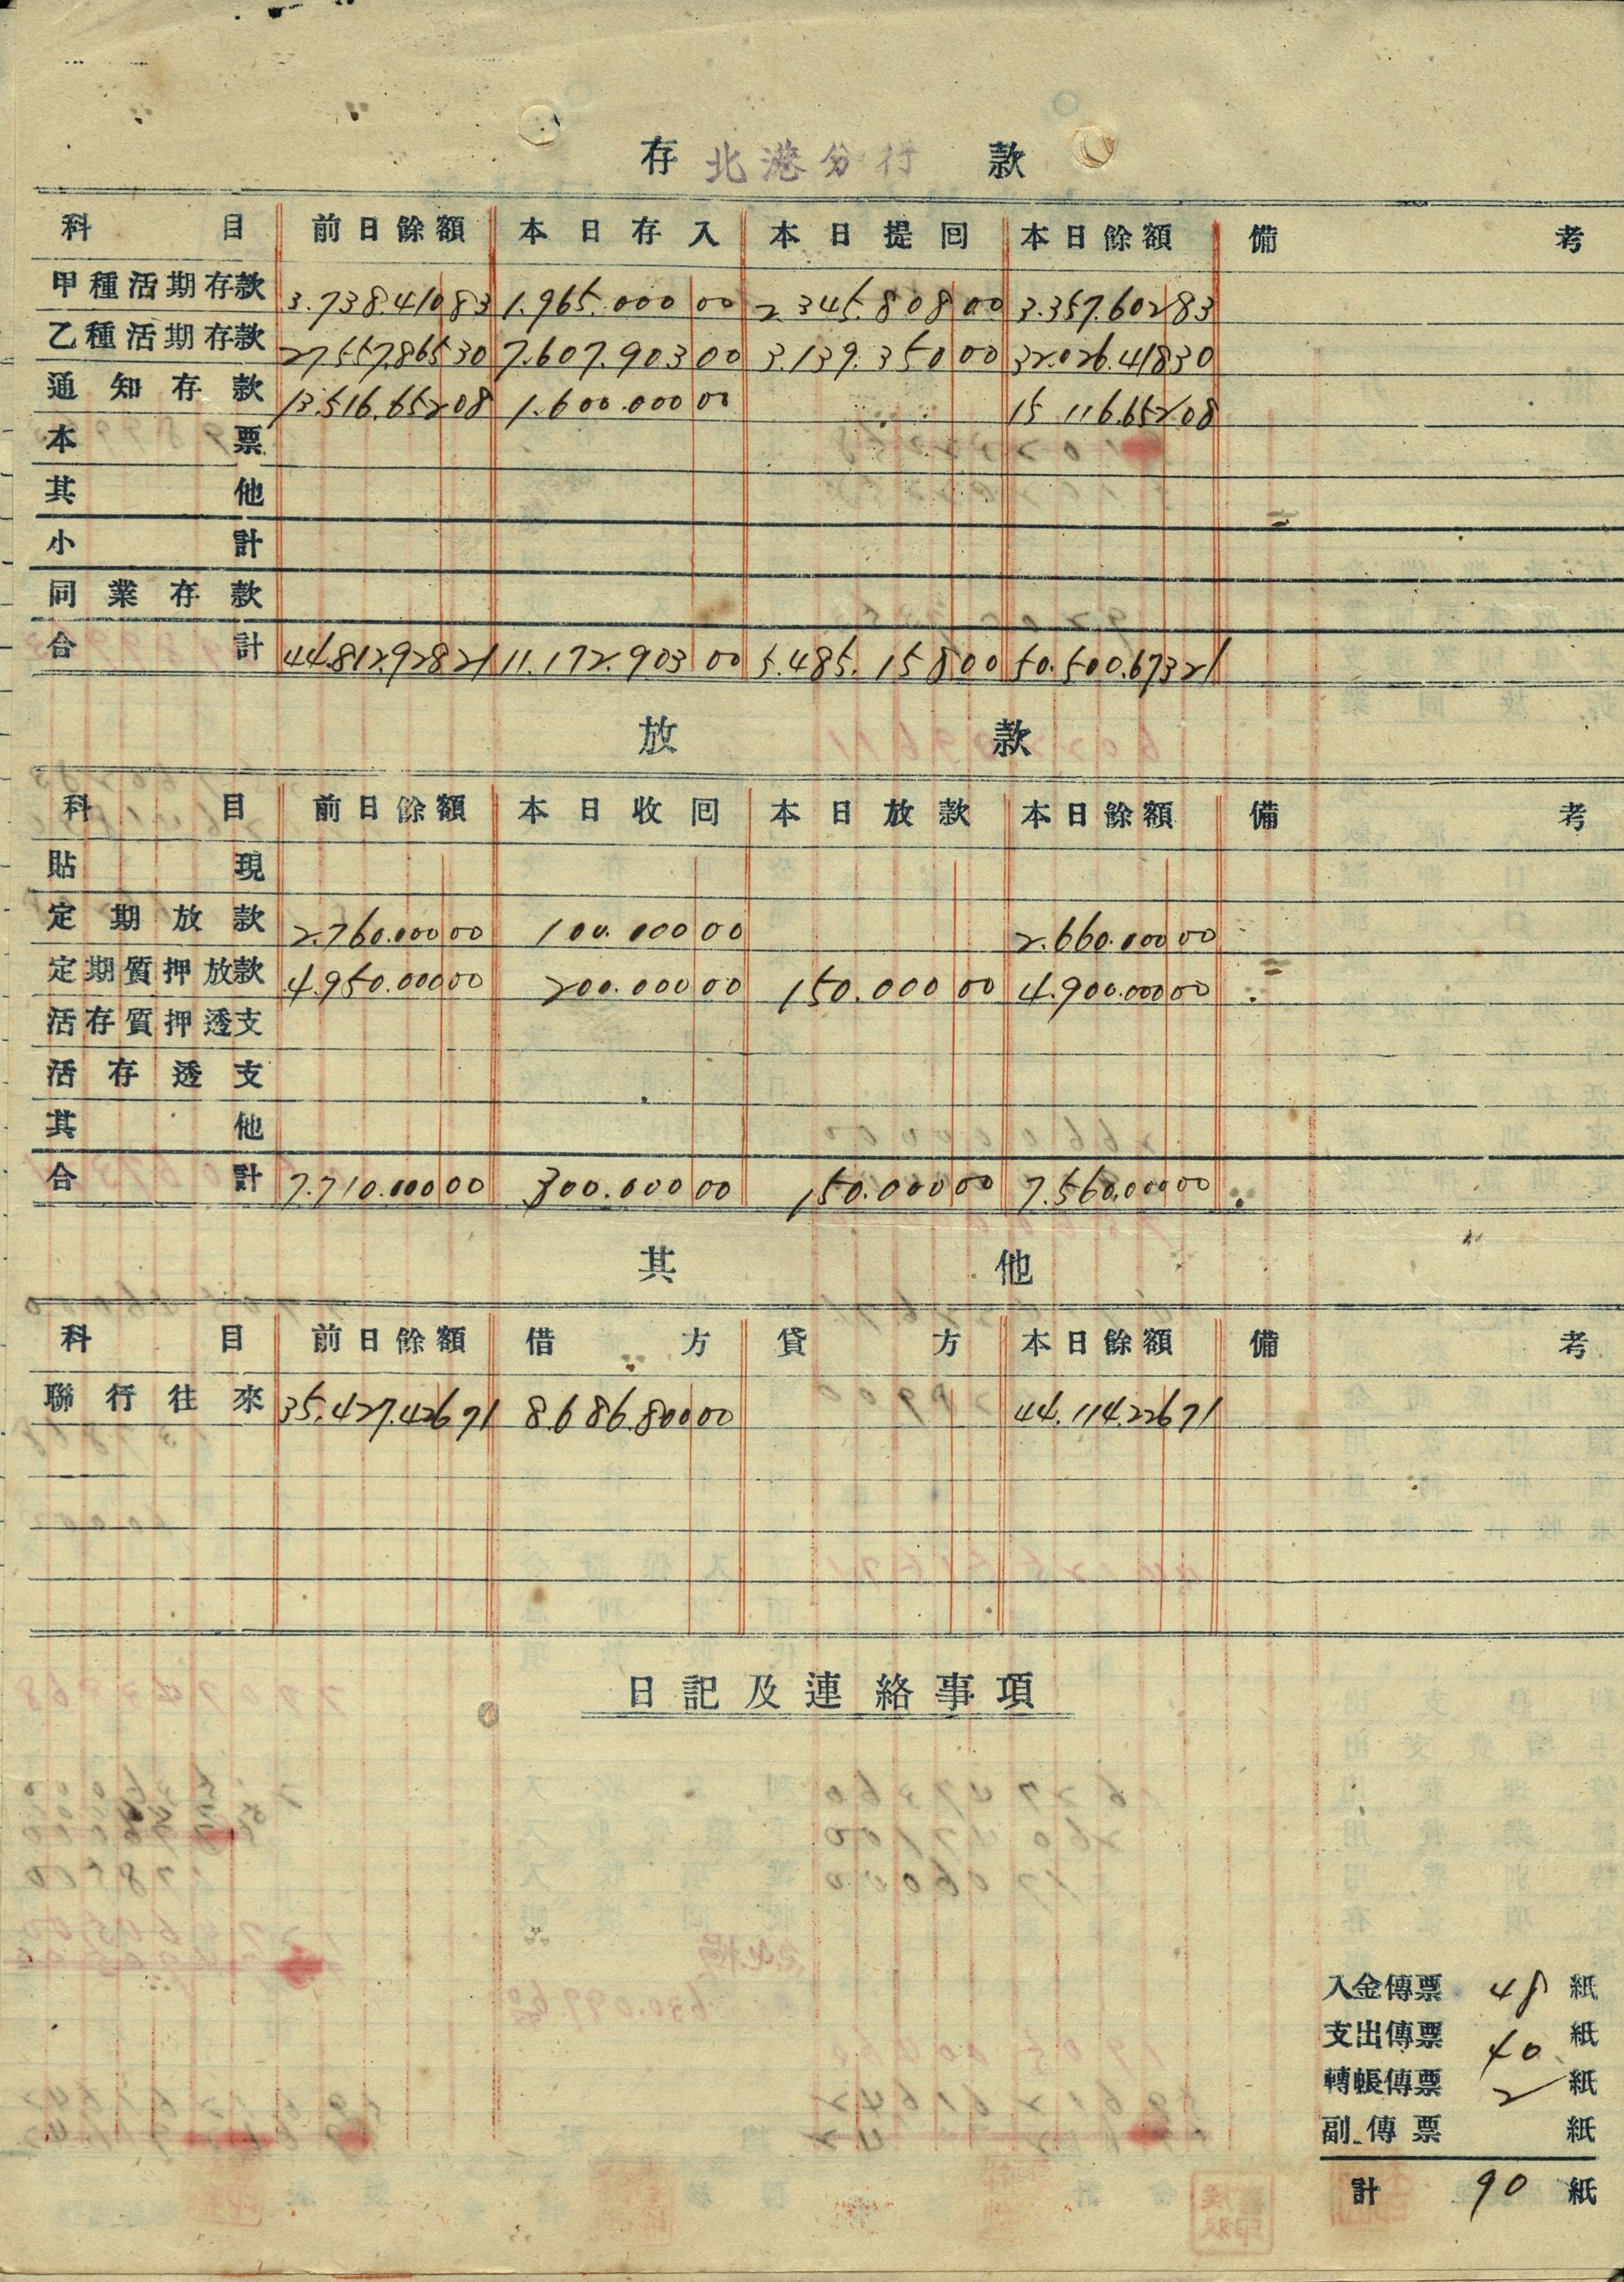 存 北港分行 款
科目 前日餘額 本日存入 本日提回 本日餘額 備考
甲種活期存款 3.738.410 83 1.965.000 00 2.345.808 00 3.357.602 83
乙種活期存款 27.557.865 30 7.607.903 00 3.139.350 00 32.026.418 30
通知存款 13.516.652 08 1.600.000 00 15 116.652 08
本票
其他
小計
同業存款
合計 44.812.928 21 11.172.903 00 5.485.158 00 50.500.673 21
放款
科目 前日餘額 本日收回 本日放款 本日餘額 備考
貼現
定期放款 2.760.000 00 100.000 00 2.660.000 00
定期質押放款 4.950.000 00 200.000 00 150.000 00 4.900.000 00
活存質押透支
活存透支
其他
合計 7.710.000 00 300.000 00 150.000 00 7.560.000 00
其他
科目 前日餘額 借方 貸方 本日餘額 備考
聯行往來 35.427.426 71 8.686.800 00 44.114.226 71
日記及連絡事項
入金傳票 48 紙
支出傳票 40 紙
轉帳傳票 2 紙
副傳票 紙
計 90 紙